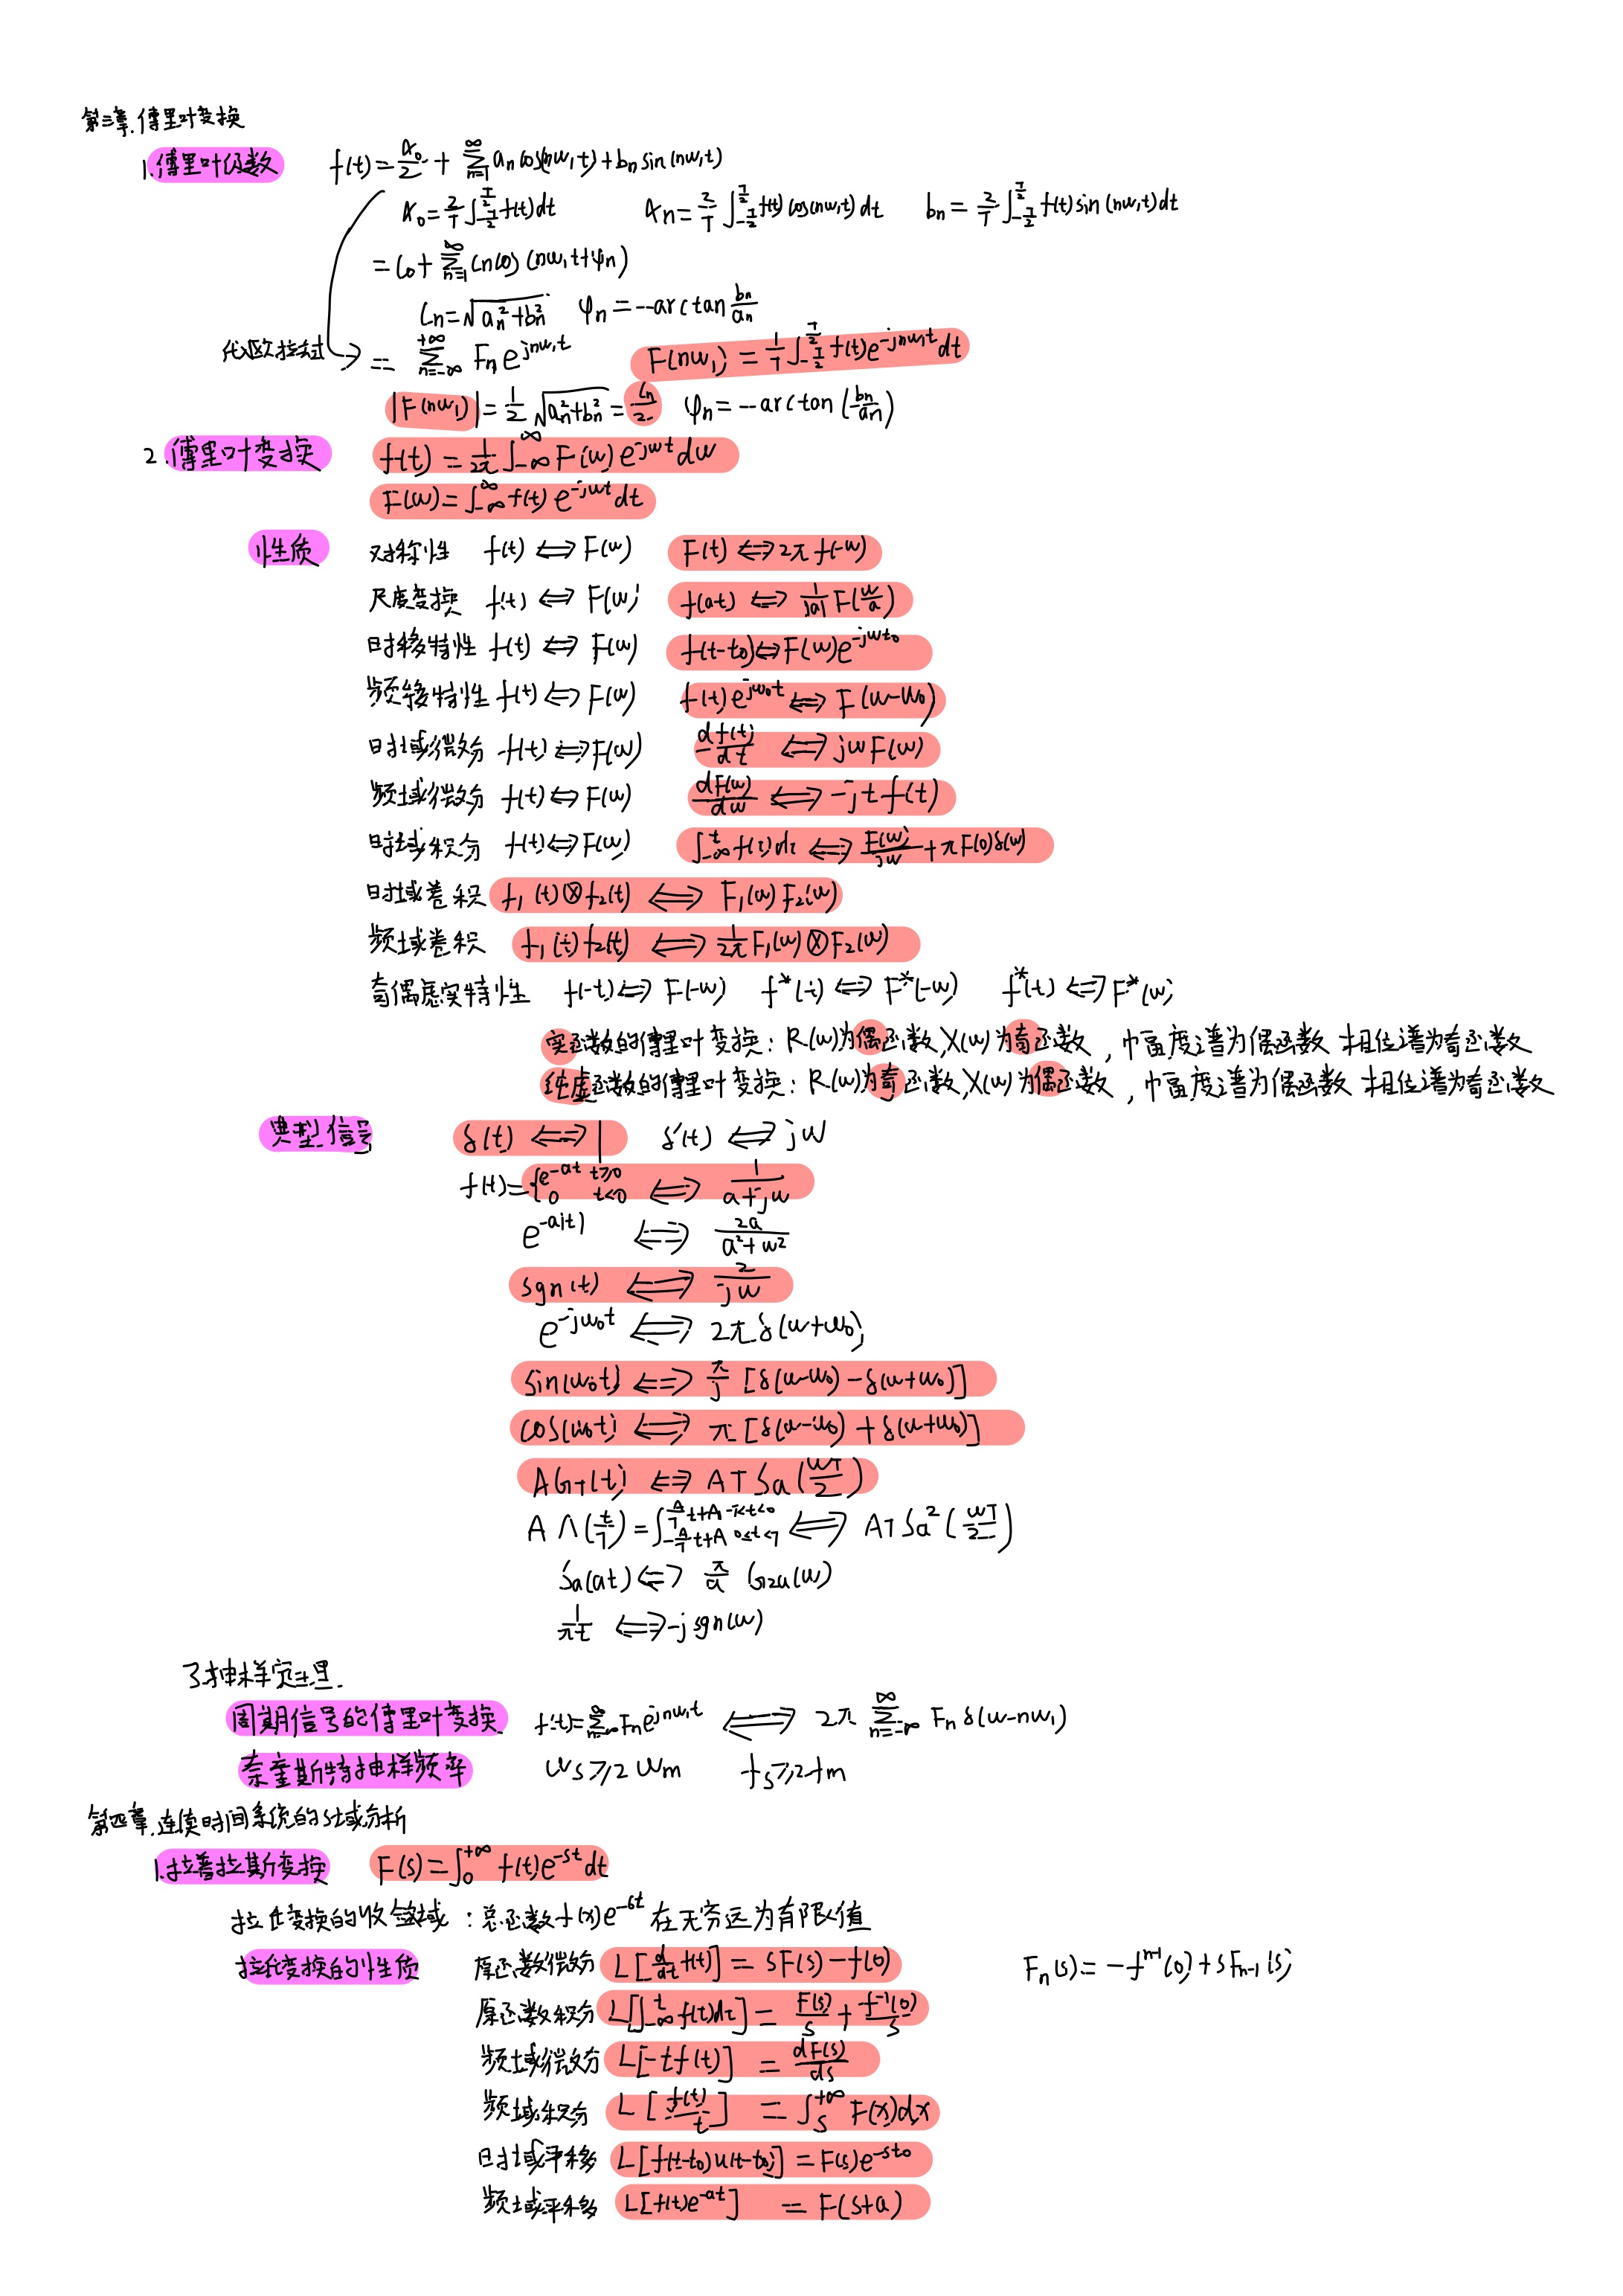 第三章.傅里叶变换
1.傅里叶级数 f(t)=a₀/2+∑_{n=1}^{∞} aₙcos(nw₁t)+bₙsin(nw₁t)
a₀=2/T∫_{-T/2}^{T/2}f(t)dt aₙ=2/T∫_{-T/2}^{T/2}f(t)cos(nw₁t)dt bₙ=2/T∫_{-T/2}^{T/2}f(t)sin(nw₁t)dt
=C₀+∑_{n=1}^{∞}Cₙcos(nw₁t+φₙ)
Cₙ=√(aₙ²+bₙ²) φₙ=-arctan bₙ/aₙ
代入欧拉公式 = ∑_{n=-∞}^{+∞} Fₙe^{jnw₁t} F(nw₁)=1/T∫_{-T/2}^{T/2}f(t)e^{-jnw₁t}dt
|F(nw₁)|=1/2√(aₙ²+bₙ²)=Cₙ/2 φₙ=-arctan(bₙ/aₙ)
2.傅里叶变换 f(t)=1/2π∫_{-∞}^{∞}F(w)e^{jwt}dw
F(w)=∫_{-∞}^{∞}f(t)e^{-jwt}dt
性质 对称性 f(t)⟺F(w) F(t)⟺2πf(-w)
尺度变换 f(t)⟺F(w) f(at)⟺1/|a|F(w/a)
时移特性 f(t)⟺F(w) f(t-t₀)⟺F(w)e^{-jwt₀}
频移特性 f(t)⟺F(w) f(t)e^{jw₀t}⟺F(w-w₀)
时域微分 f(t)⟺F(w) df(t)/dt⟺jwF(w)
频域微分 f(t)⟺F(w) dF(w)/dw⟺-jtf(t)
时域积分 f(t)⟺F(w) ∫_{-∞}^{t}f(τ)dτ⟺F(w)/jw+πF(0)δ(w)
时域卷积 f₁(t)⊗f₂(t)⟺F₁(w)F₂(w)
频域卷积 f₁(t)f₂(t)⟺1/2πF₁(w)⊗F₂(w)
奇偶虚实特性 f(-t)⟺F(-w) f*(t)⟺F*(-w) f*(-t)⟺F*(w)
实函数的傅里叶变换：R(w)为偶函数,X(w)为奇函数，幅度谱为偶函数 相位谱为奇函数
纯虚函数的傅里叶变换：R(w)为奇函数,X(w)为偶函数，幅度谱为偶函数 相位谱为奇函数
典型信号 δ(t)⟺1 δ'(t)⟺jw
f(t)={e^{-at} t≥0 0 t<0 ⟺ 1/(a+jw)
e^{-a|t|}⟺2a/(a²+w²)
sgn(t)⟺2/jw
e^{-jw₀t}⟺2πδ(w+w₀)
sin(w₀t)⟺π/j[δ(w-w₀)-δ(w+w₀)]
cos(w₀t)⟺π[δ(w-w₀)+δ(w+w₀)]
AG_T(t)⟺ATSa(wT/2)
A∧(t/T)={A/T t+A -T<t<0 -A/T t+A 0≤t<T ⟺ATSa²(wT/2)
Sa(at)⟺π/a G₂ₐ(w)
1/πt⟺-jsgn(w)
3.抽样定理.
周期信号的傅里叶变换 f(t)=∑_{n=-∞}^{∞}Fₙe^{jnw₁t}⟺2π∑_{n=-∞}^{∞}Fₙδ(w-nw₁)
奈奎斯特抽样频率 ws≥2wm fs≥2fm
第四章.连续时间系统的S域分析
1.拉普拉斯变换 F(s)=∫_0^{+∞}f(t)e^{-st}dt
拉氏变换的收敛域：总函数f(x)e^{-σt}在无穷远为有限值
拉氏变换的性质 原函数微分 L[d/dt f(t)]=SF(s)-f(0) Fₙ(s)=-f^{n-1}(0)+SFₙ₋₁(s)
原函数积分 L[∫_{-∞}^{t}f(τ)dτ]=F(s)/S+f^{-1}(0)/S
频域微分 L[-tf(t)]=dF(s)/ds
频域积分 L[f(t)/t]=∫_S^{+∞}F(x)dx
时域平移 L[f(t-t₀)u(t-t₀)]=F(s)e^{-st₀}
频域平移 L[f(t)e^{-at}]=F(s+a)